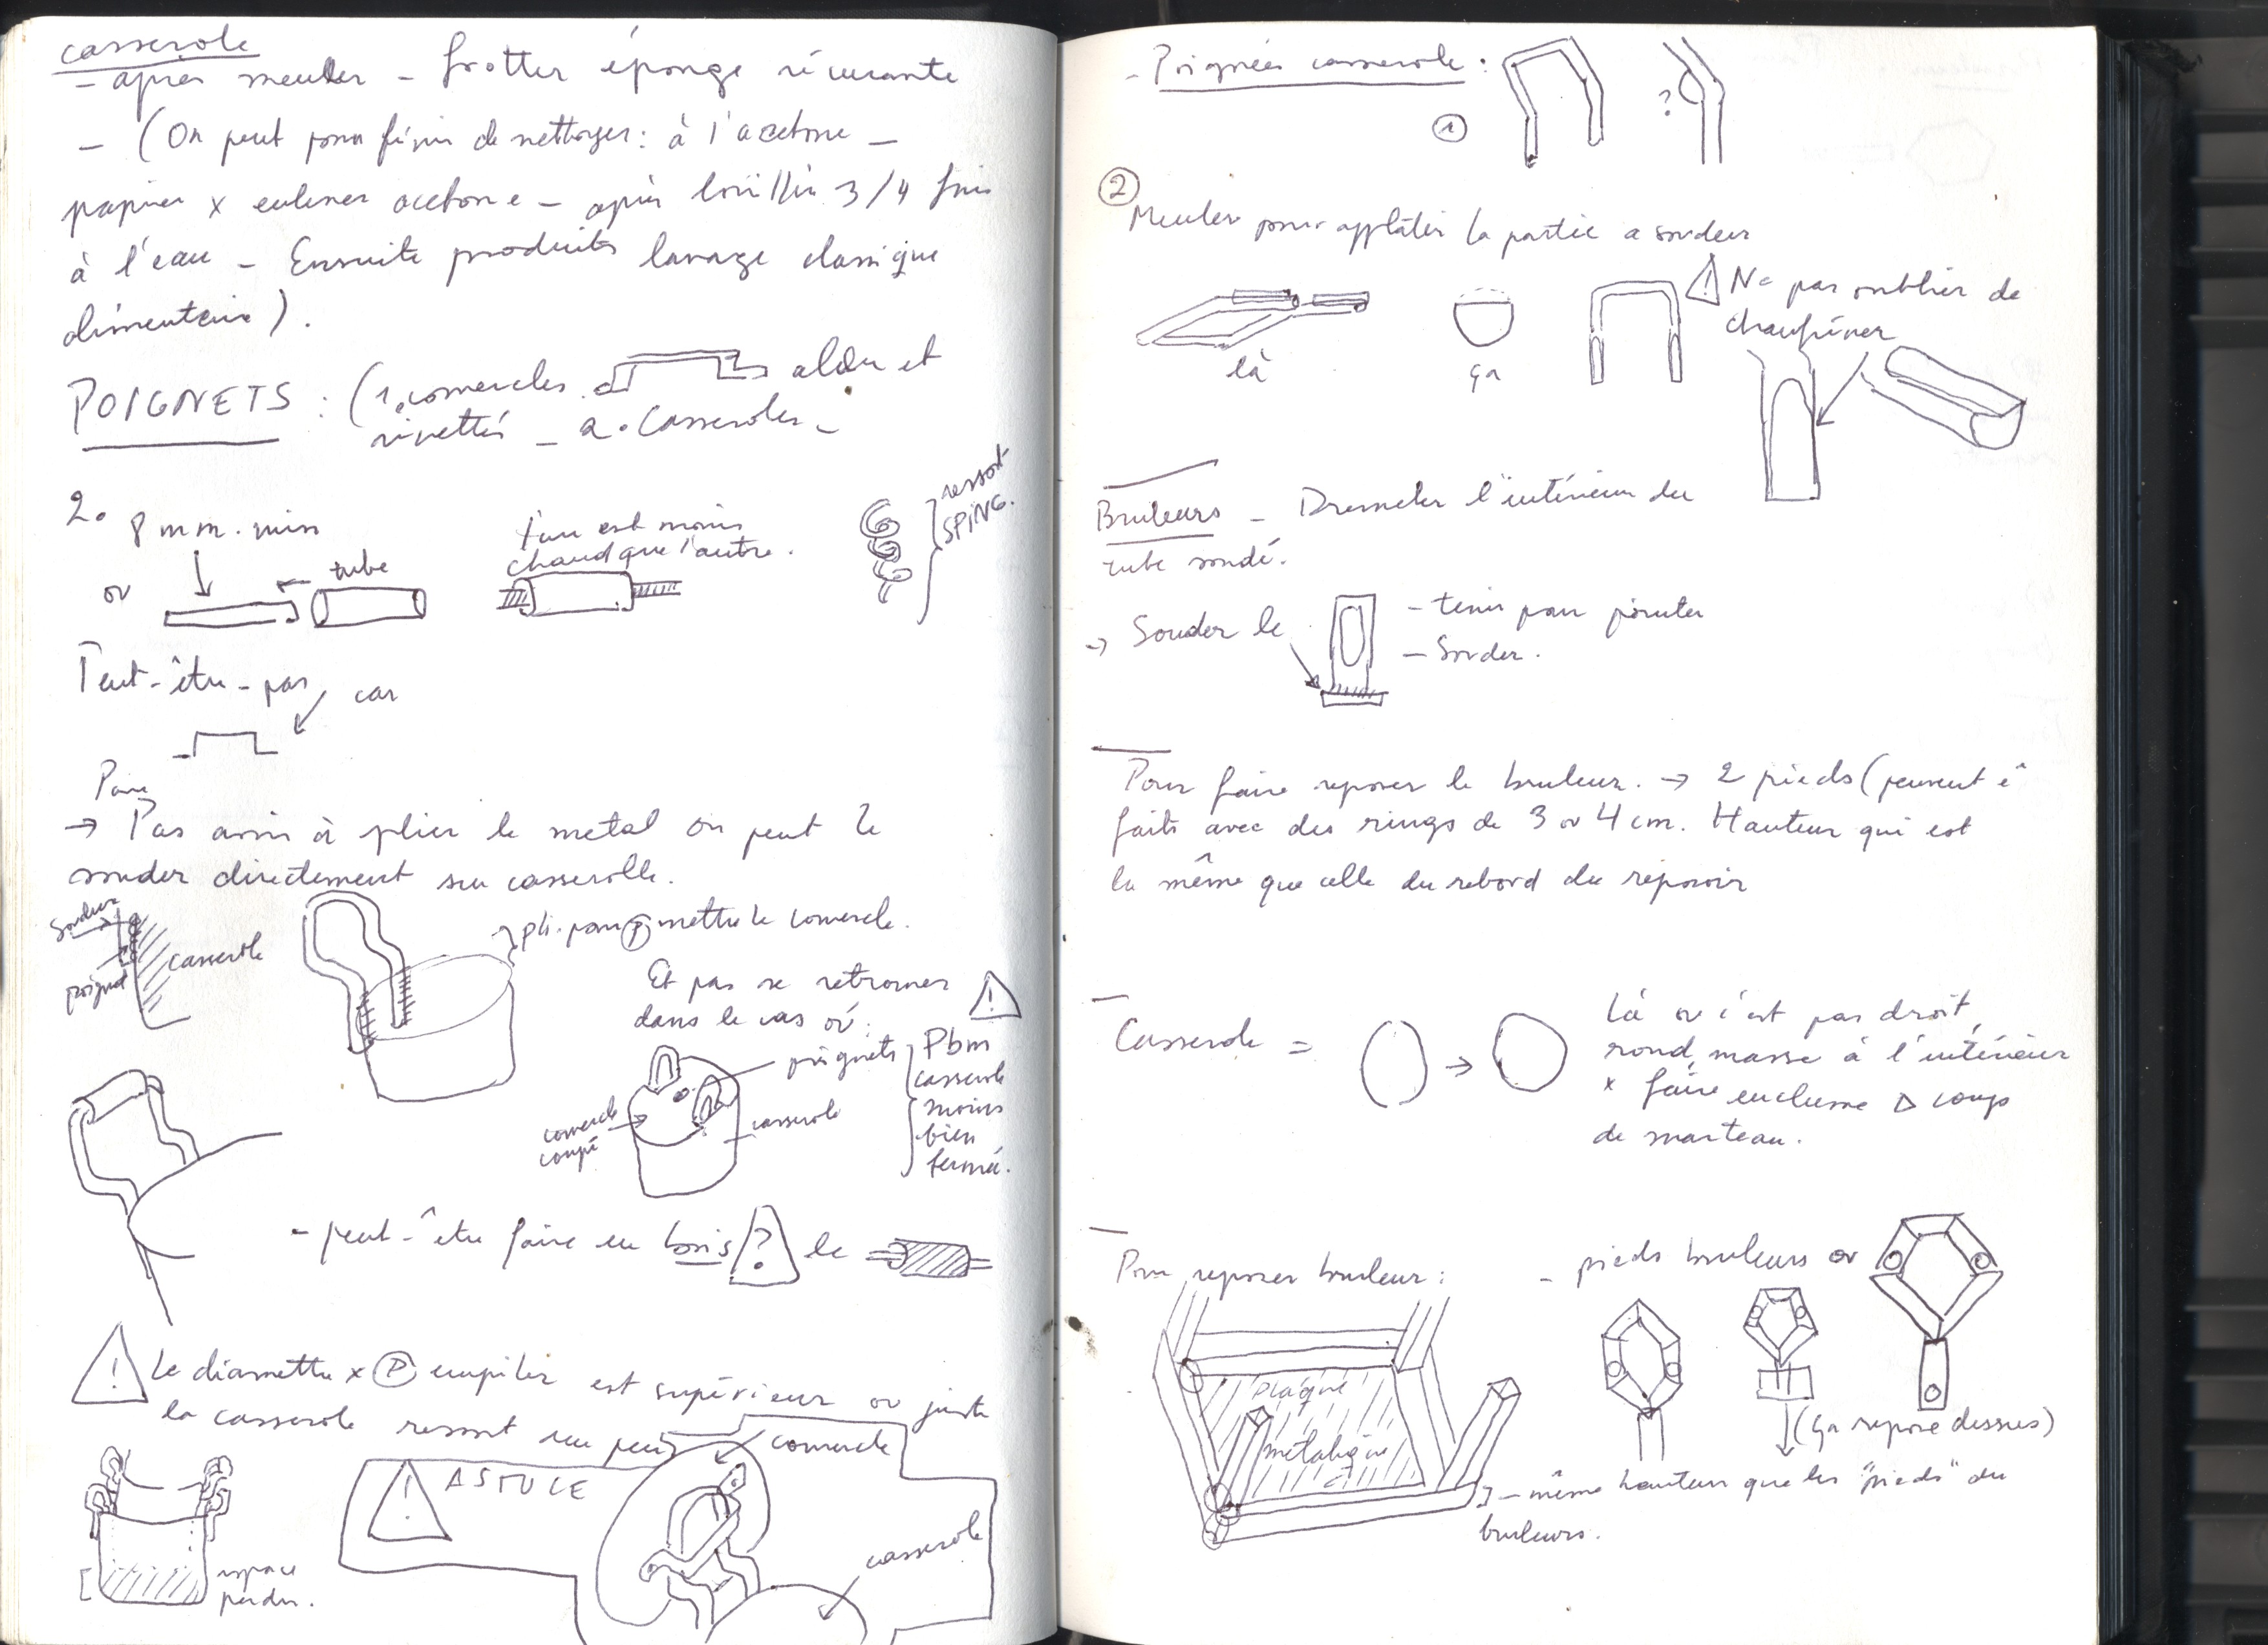 casserole
- après meuler - frotter éponge récurante
- (On peut pour finir de nettoyer: à l'acetone -
papier x enlever acetone - après bouillir 3/4 fois
à l'eau - Ensuite produits lavage classique
alimentaire).
POIGNETS : (1. couvercles
et
rivettés - 2. Casseroles -
2.
8 mm. min
ou
tube
l'un est moins
chaud que l'autre.
ressort
SPING.
Peut-être - pas car
Pour
→ Pas avoir à plier le metal on peut le
souder directement su casserolle.
soudure
poignet
casserole
pli. pour P mettre le couvercle.
Et pas se retrouver
dans le cas où :
!
poignets
couvercle
coupé
casserole
Pbm
casserole
moins
bien
fermé.
- peut-être faire en bois ? le
! Le diamettre x P empiler est supérieur ou juste
la casserole ressort un peu
espace
perdu.
! ASTUCE
couvercle
casserole
- Poignées casserole :
1
?
2
Meuler pour applâtir la partie a souder
là
ça
! Ne pas oublier de
chanfriner
Bruleurs - Dremeler l'intérieur du
tube soudé.
→ Souder le
- tenir pour pointer
- Souder.
Pour faire reposer le bruleur. → 2 pieds (peuvent ê
faits avec des rings de 3 ou 4 cm. Hauteur qui est
la même que celle du rebord du reposoir
Casserole =
→
Là où c'est pas droit,
rond, masse à l'intérieur
x faire enclume Δ coups
de marteau.
Pour reposer bruleur :
plaque
métalique
- pieds bruleurs ou
(ça repose dessus)
- même hauteur que les "pieds" du
bruleurs.